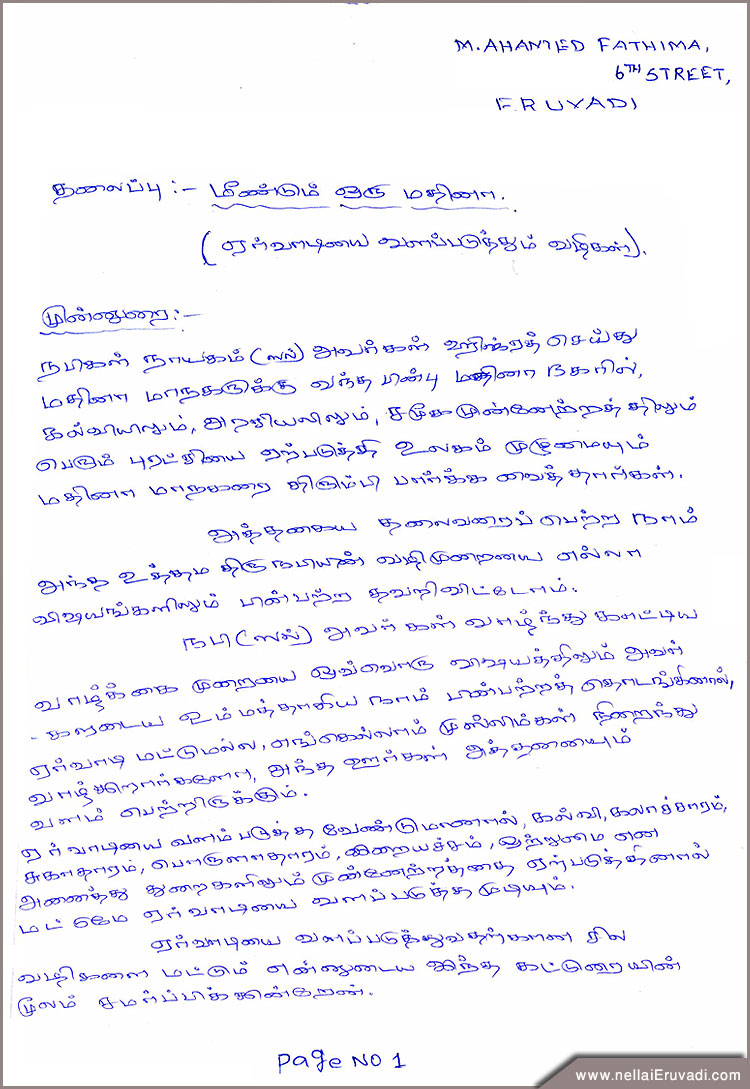 M. AHAMED FATHIMA,
6TH STREET,
ERUVADI
தலைப்பு :- மீண்டும் ஒரு மதினா.
(ஏர்வாடியை வளப்படுத்தும் வழிகள்).
முன்னுரை:-
நபிகள் நாயகம் (ஸல்) அவர்கள் ஹிஜ்ரத் செய்து
மதினா மாநகருக்கு வந்த பின்பு மதினா நகரில்,
கல்வியிலும், அரசியலிலும், சமூக முன்னேற்றத்திலும்
பெரும் புரட்சியை ஏற்படுத்தி உலகம் முழுமையும்
மதினா மாநகரை திரும்பி பார்க்க வைத்தார்கள்.
அத்தகைய தலைவரைப் பெற்ற நாம்
அந்த உத்தம திருநபியின் வழிமுறையை எல்லா
விஷயங்களிலும் பின்பற்ற தவறிவிட்டோம்.
நபி (ஸல்) அவர்கள் வாழ்ந்து காட்டிய
வாழ்க்கை முறையை ஒவ்வொரு விஷயத்திலும் அவர்
-களுடைய உம்மத்தாகிய நாம் பின்பற்றத் தொடங்கினால்,
ஏர்வாடி மட்டுமல்ல, எங்கெல்லாம் முஸ்லிம்கள் நிறைந்து
வாழ்கிறார்களோ, அந்த ஊர்கள் அத்தனையும்
வளம் பெற்றிருக்கும்.
ஏர்வாடியை வளம்படுத்த வேண்டுமானால், கல்வி, கலாச்சாரம்,
சுகாதாரம், பொருளாதாரம், இறையச்சம், ஒற்றுமை என
அனைத்து துறைகளிலும் முன்னேற்றத்தை ஏற்படுத்தினால்
மட்டுமே ஏர்வாடியை வளப்படுத்த முடியும்.
ஏர்வாடியை வளப்படுத்துவதற்கான சில
வழிகளை மட்டும் என்னுடைய இந்த கட்டுரையின்
மூலம் சமர்ப்பிக்கின்றேன்.
Page NO 1
www.nellaiEruvadi.com